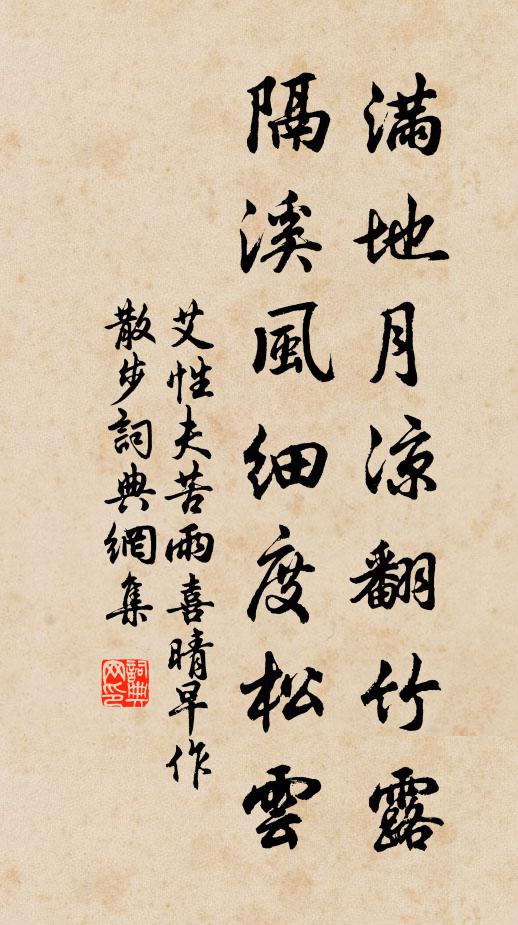 滿地月涼翻竹露
隔溪風細度松雲
艾性夫苦雨喜晴早作
散步詞典網集
詞典网印